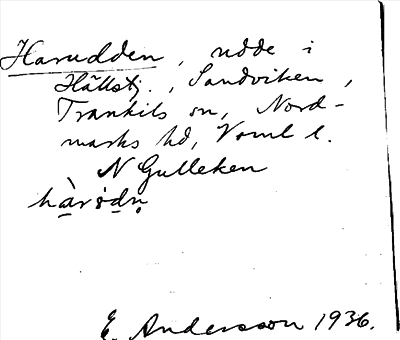 Harudden, udde i
Hällstj., Sandviken,
Trankils sn, Nord-
marks hd, Vrml l.
N Gulleken
hàrødn̥
E. Andersson 1936.